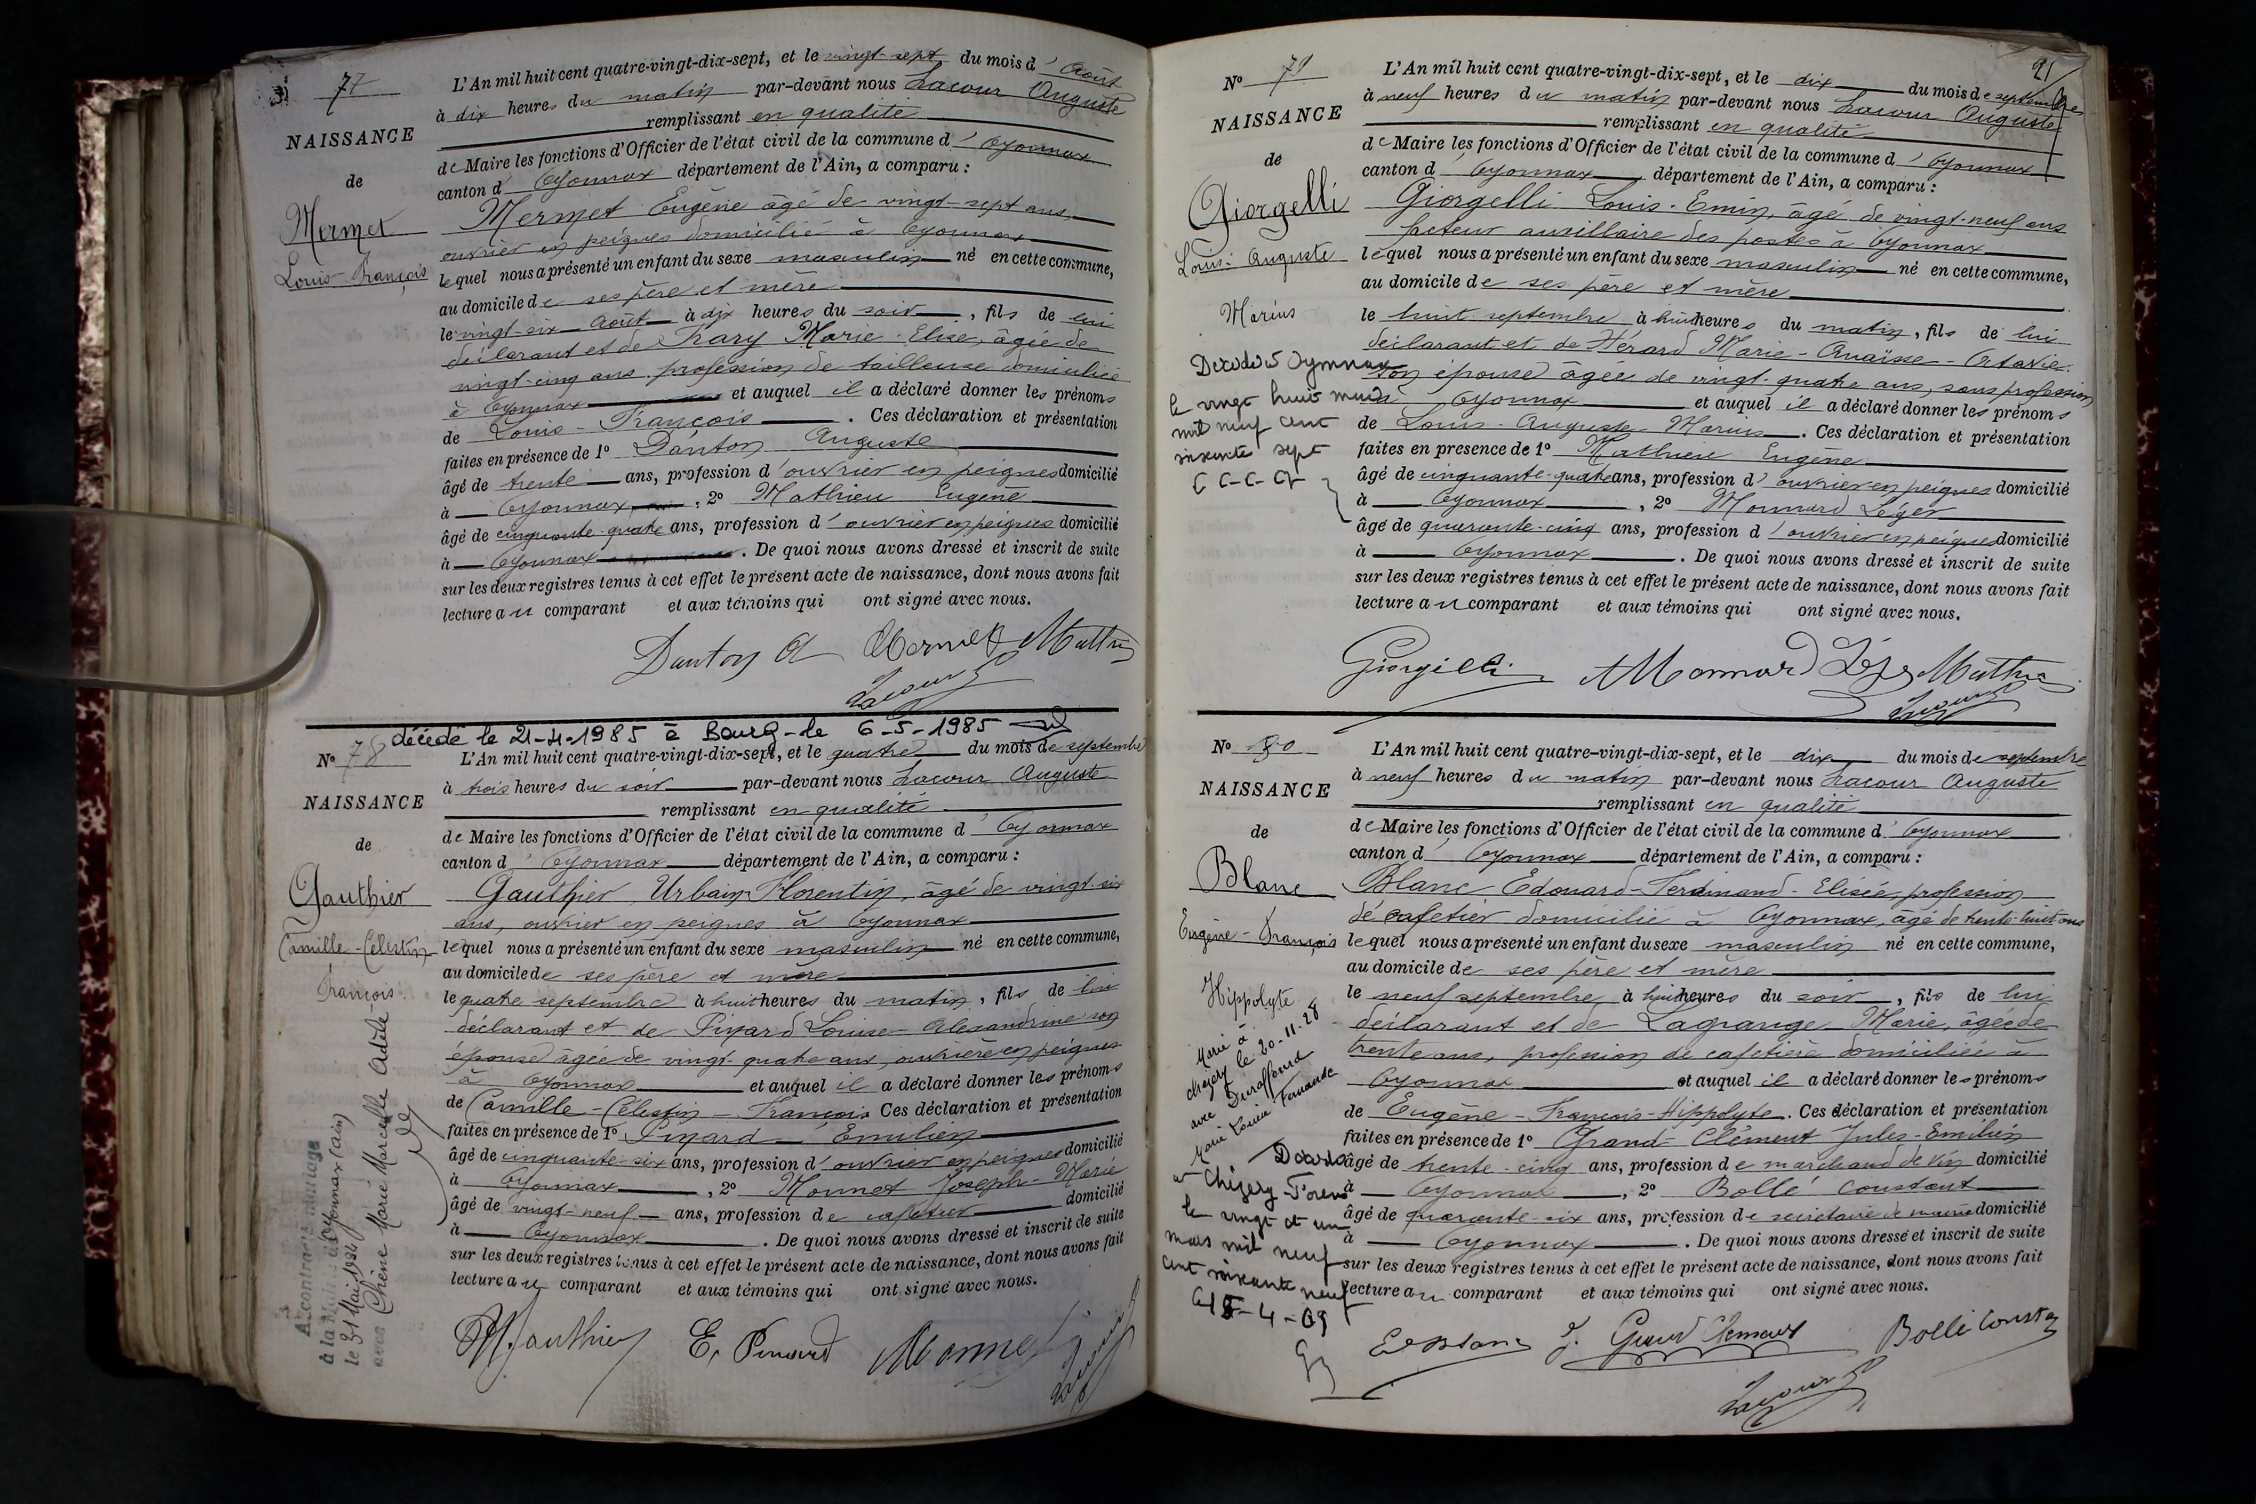 77
NAISSANCE
de
Mermet
Louis-François
L'An mil huit cent quatre-vingt-dix-sept, et le vingt-sept du mois d'Août
à dix heures du matin par-devant nous Lacour Auguste
remplissant en qualité
de Maire les fonctions d'Officier de l'état civil de la commune d'Oyonnax
canton d'Oyonnax département de l'Ain, a comparu :
Mermet Eugène âgé de vingt-sept ans
ouvrier en peignes domicilié à Oyonnax
lequel nous a présenté un enfant du sexe masculin né en cette commune,
au domicile de ses père et mère
le vingt-six Août à dix heures du soir, fils de lui
déclarant et de Marie-Elise, âgée de
vingt-cinq ans profession de tailleuse domiciliée
à Oyonnax et auquel il a déclaré donner les prénoms
de Louis-François. Ces déclaration et présentation
faites en présence de 1° Danton Auguste
âgé de trente ans, profession d'ouvrier en peignes domicilié
à Oyonnax, 2° Mathieu Eugène
âgé de cinquante-quatre ans, profession d'ouvrier en peignes domicilié
à Oyonnax. De quoi nous avons dressé et inscrit de suite
sur les deux registres tenus à cet effet le présent acte de naissance, dont nous avons fait
lecture au comparant et aux témoins qui ont signé avec nous.
Danton A Mermet Mathieu
Lacour
décédé le 21-4-1985 à Bourg - le 6-5-1985
N° 78
NAISSANCE
de
Gauthier
Camille-Célestin
François
L'An mil huit cent quatre-vingt-dix-sept, et le quatre du mois de septembre
à trois heures du soir par-devant nous Lacour Auguste
remplissant en qualité
de Maire les fonctions d'Officier de l'état civil de la commune d'Oyonnax
canton d'Oyonnax département de l'Ain, a comparu :
Gauthier Urbain Florentin, âgé de vingt-six
ans, ouvrier en peignes à Oyonnax
lequel nous a présenté un enfant du sexe masculin né en cette commune,
au domicile de ses père et mère
le quatre septembre à huit heures du matin, fils de lui
déclarant et de Pinard Louise-Alexandrine son
épouse âgée de vingt-quatre ans, ouvrière en peignes
à Oyonnax et auquel il a déclaré donner les prénoms
de Camille-Célestin-François. Ces déclaration et présentation
faites en présence de 1° Pinard Emilien
âgé de cinquante-six ans, profession d'ouvrier en peignes domicilié
à Oyonnax, 2° Monnet Joseph-Marie
âgé de vingt-neuf ans, profession de cafetier domicilié
à Oyonnax. De quoi nous avons dressé et inscrit de suite
sur les deux registres tenus à cet effet le présent acte de naissance, dont nous avons fait
lecture au comparant et aux témoins qui ont signé avec nous.
A contracté mariage
à la Mairie d'Oyonnax (Ain)
le 31 Mai 1924
avec Chêne Marie Marcelle Adèle
Gauthier E. Pinard Monnet
Lacour
91
N° 79
NAISSANCE
de
Giorgelli
Louis-Auguste
Marius
Décédé à Oyonnax
le vingt huit
mil neuf cent
soixante sept
L'An mil huit cent quatre-vingt-dix-sept, et le dix du mois de septembre
à neuf heures du matin par-devant nous Lacour Auguste
remplissant en qualité
de Maire les fonctions d'Officier de l'état civil de la commune d'Oyonnax
canton d'Oyonnax département de l'Ain, a comparu :
Giorgelli Louis-Emin, âgé de vingt-neuf ans
facteur auxillaire des postes à Oyonnax
lequel nous a présenté un enfant du sexe masculin né en cette commune,
au domicile de ses père et mère
le huit septembre à huit heures du matin, fils de lui
déclarant et de Hérard Marie-Anaïsse-Octavie
son épouse âgée de vingt-quatre ans, sans profession
à Oyonnax et auquel il a déclaré donner les prénoms
de Louis-Auguste-Marius. Ces déclaration et présentation
faites en présence de 1° Mathieu Eugène
âgé de cinquante-quatre ans, profession d'ouvrier en peignes domicilié
à Oyonnax, 2° Monnard Léger
âgé de quarante-cinq ans, profession d'ouvrier en peignes domicilié
à Oyonnax. De quoi nous avons dressé et inscrit de suite
sur les deux registres tenus à cet effet le présent acte de naissance, dont nous avons fait
lecture au comparant et aux témoins qui ont signé avec nous.
Giorgelli Monnard Léger Mathieu
Lacour
N° 80
NAISSANCE
de
Blanc
Eugène-François
Hippolyte
Marié à
Chézery le 20-11-28
avec Duraffourd
Marie Louise Fernande
Décédé
à Chézery-Forens
le vingt et un
mars mil neuf
cent soixante neuf
15-4-69
L'An mil huit cent quatre-vingt-dix-sept, et le dix du mois de septembre
à neuf heures du matin par-devant nous Lacour Auguste
remplissant en qualité
de Maire les fonctions d'Officier de l'état civil de la commune d'Oyonnax
canton d'Oyonnax département de l'Ain, a comparu :
Blanc Edouard-Ferdinand-Elisée, profession
de cafetier domicilié à Oyonnax, âgé de trente-huit ans
lequel nous a présenté un enfant du sexe masculin né en cette commune,
au domicile de ses père et mère
le neuf septembre à huit heures du soir, fils de lui
déclarant et de Lagrange Marie, âgée de
trente ans, profession de cafetière domiciliée à
Oyonnax et auquel il a déclaré donner les prénoms
de Eugène-François-Hippolyte. Ces déclaration et présentation
faites en présence de 1° Grand-Clément Jules-Emilien
âgé de trente-cinq ans, profession de marchand de vin domicilié
à Oyonnax, 2° Bollé Constant
âgé de quarante-six ans, profession de secrétaire de mairie domicilié
à Oyonnax. De quoi nous avons dressé et inscrit de suite
sur les deux registres tenus à cet effet le présent acte de naissance, dont nous avons fait
lecture au comparant et aux témoins qui ont signé avec nous.
Ed Blanc J. Grand Clément Bollé Constant
Lacour